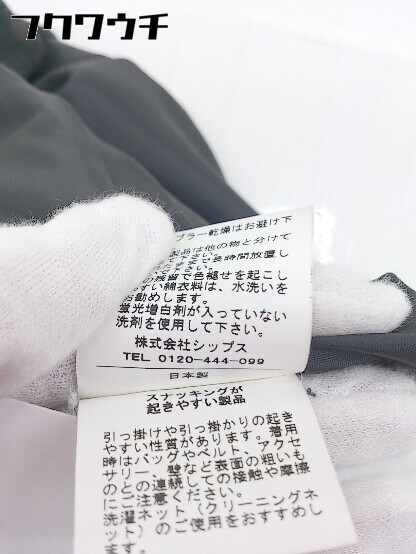 フクワウチ
ブラー乾燥はお避け下
製品は他の物と分けて
下さい。
まで長時間放置し
で下さい。
の残留で色褪せを起こし
すい綿衣料は、水洗いを
お勧めします。
蛍光増白剤が入っていない
洗剤を使用して下さい。
株式会社シップス
TEL 0120-444-099
日本製
スナッキングが
起きやすい製品
引っ掛けや引っ掛かりの起き
やすい性質があります。着用
時はバッグやベルト、アクセ
サリー、壁など表面の粗いも
のとの連続しての接触や摩擦
にご注意ください。
洗濯ネット（クリーニングネ
ット）のご使用をおすすめし
ます。